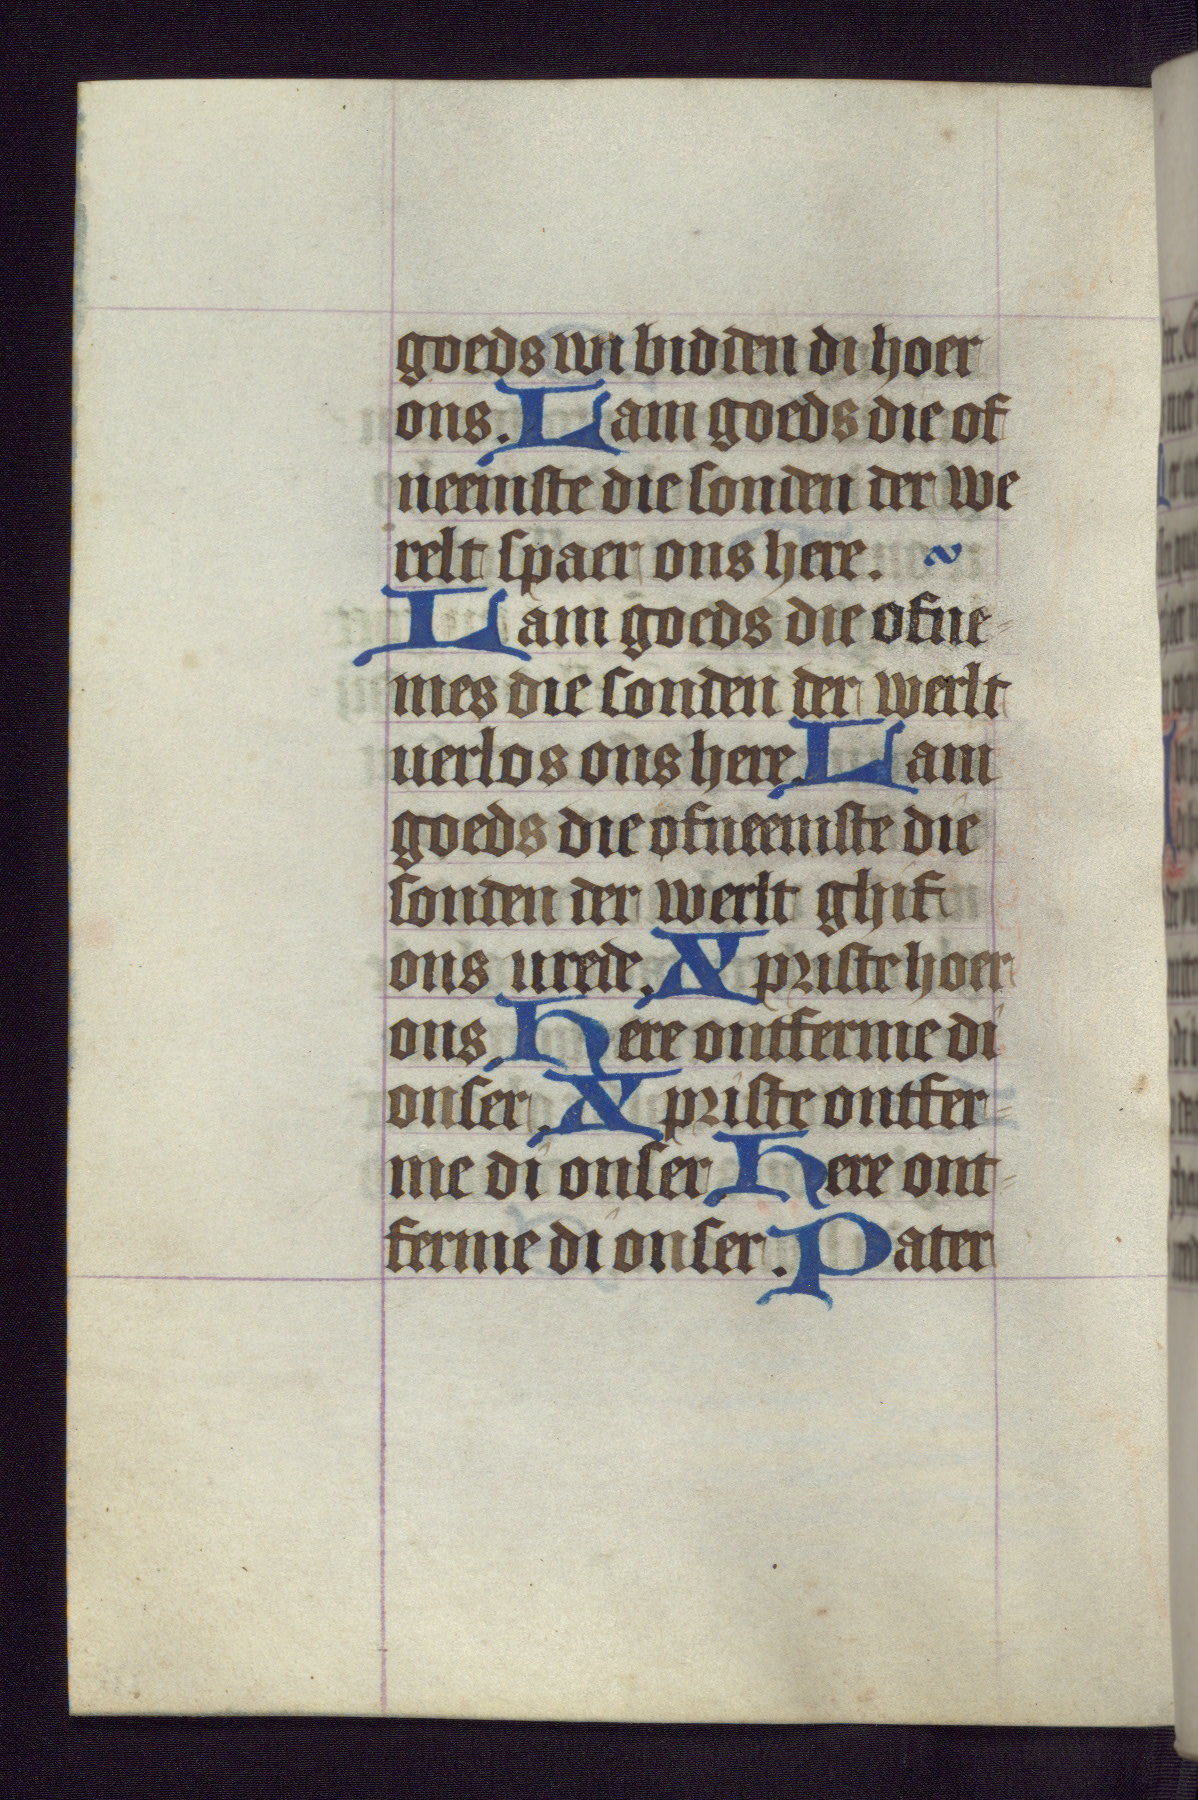 goeds wi bidden di hoer
ons. Lam goeds die of
neemste die sonden der we
relt spaer ons here.
Lam goeds die ofne-
mes die sonden der werlt
uerlos ons here. Lam
goeds die ofneemste die
sonden der werlt ghif
ons urede. Xpriste hoer
ons. Here ontferme di
onser. Xpriste ontfer-
me di onser. Here ont-
ferme di onser. Pater